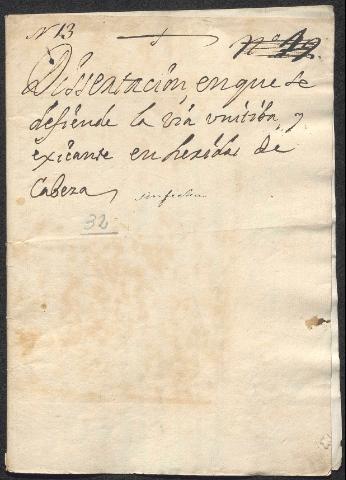 N 13
Nº 49
Dissertación, en que se
defiende la via vnitiba, y
exicante en heridas de
Cabeza
sin fecha
32